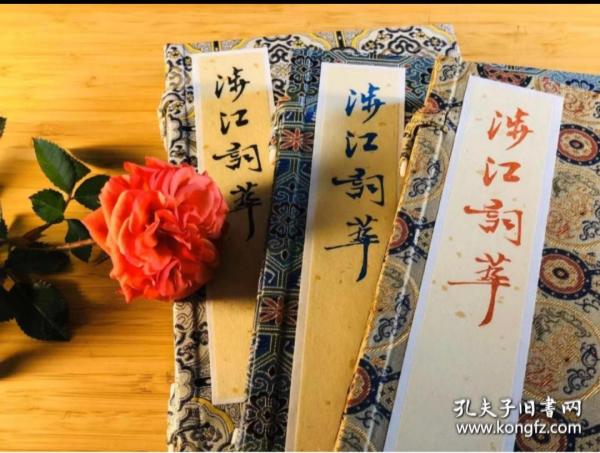 涉江詞萃
涉江詞萃
涉江詞萃
孔夫子旧書网
www.kongfz.com